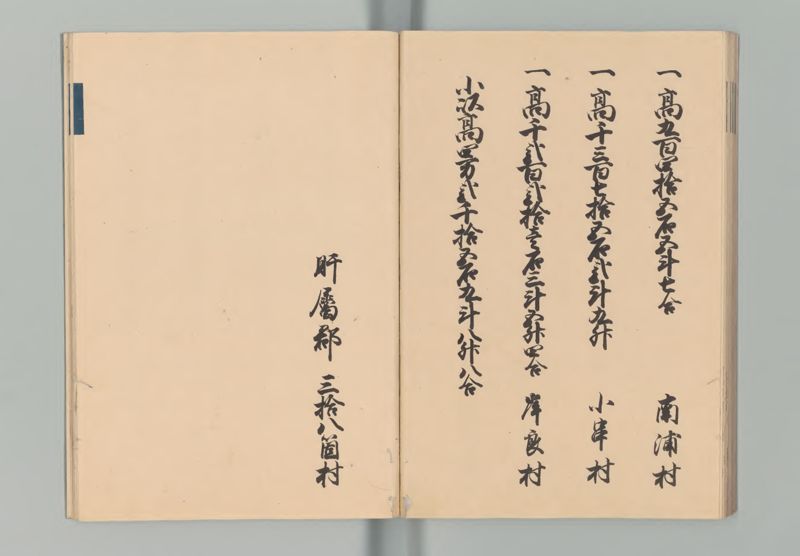 一高九百四拾五石五斗七合 南浦村
一高千三百七拾五石弐斗九升 小串村
一高千弐百弐拾壱石三斗五升四合 岸良村
小以高四万弐千拾五石九斗八升八合
肝属郡 三拾八箇村